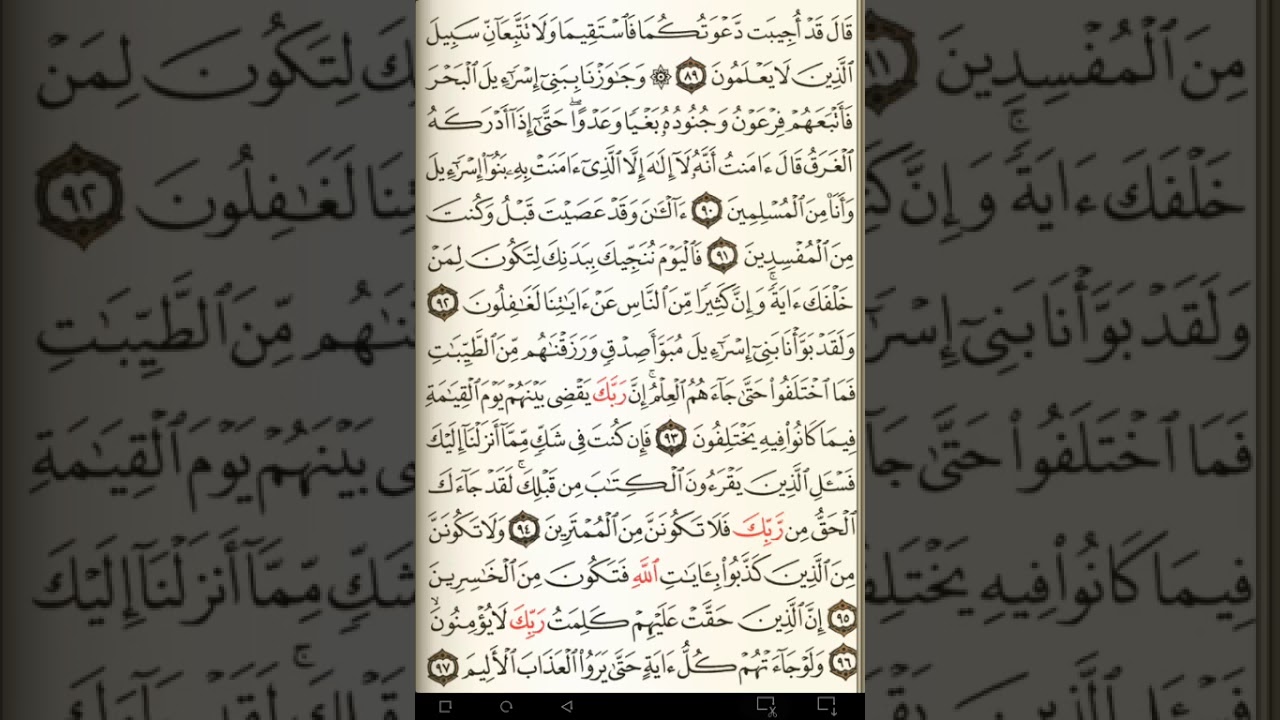 قَالَ قَدْ أُجِيبَت دَّعْوَتُكُمَا فَٱسْتَقِيمَا وَلَا تَتَّبِعَآنِّ سَبِيلَ
ٱلَّذِينَ لَا يَعْلَمُونَ ٨٩ ۞ وَجَٰوَزْنَا بِبَنِىٓ إِسْرَٰٓءِيلَ ٱلْبَحْرَ
فَأَتْبَعَهُمْ فِرْعَوْنُ وَجُنُودُهُۥ بَغْيًا وَعَدْوًا ۖ حَتَّىٰٓ إِذَآ أَدْرَكَهُ
ٱلْغَرَقُ قَالَ ءَامَنتُ أَنَّهُۥ لَآ إِلَٰهَ إِلَّا ٱلَّذِىٓ ءَامَنَتْ بِهِۦ بَنُوٓا۟ إِسْرَٰٓءِيلَ
وَأَنَا۠ مِنَ ٱلْمُسْلِمِينَ ٩٠ ءَآلْـَٰٔنَ وَقَدْ عَصَيْتَ قَبْلُ وَكُنتَ
مِنَ ٱلْمُفْسِدِينَ ٩١ فَٱلْيَوْمَ نُنَجِّيكَ بِبَدَنِكَ لِتَكُونَ لِمَنْ
خَلْفَكَ ءَايَةً ۚ وَإِنَّ كَثِيرًا مِّنَ ٱلنَّاسِ عَنْ ءَايَٰتِنَا لَغَٰفِلُونَ ٩٢
وَلَقَدْ بَوَّأْنَا بَنِىٓ إِسْرَٰٓءِيلَ مُبَوَّأَ صِدْقٍ وَرَزَقْنَٰهُم مِّنَ ٱلطَّيِّبَٰتِ
فَمَا ٱخْتَلَفُوا۟ حَتَّىٰ جَآءَهُمُ ٱلْعِلْمُ ۚ إِنَّ رَبَّكَ يَقْضِى بَيْنَهُمْ يَوْمَ ٱلْقِيَٰمَةِ
فِيمَا كَانُوا۟ فِيهِ يَخْتَلِفُونَ ٩٣ فَإِن كُنتَ فِى شَكٍّ مِّمَّآ أَنزَلْنَآ إِلَيْكَ
فَسْـَٔلِ ٱلَّذِينَ يَقْرَءُونَ ٱلْكِتَٰبَ مِن قَبْلِكَ ۚ لَقَدْ جَآءَكَ
ٱلْحَقُّ مِن رَّبِّكَ فَلَا تَكُونَنَّ مِنَ ٱلْمُمْتَرِينَ ٩٤ وَلَا تَكُونَنَّ
مِنَ ٱلَّذِينَ كَذَّبُوا۟ بِـَٔايَٰتِ ٱللَّهِ فَتَكُونَ مِنَ ٱلْخَٰسِرِينَ
٩٥ إِنَّ ٱلَّذِينَ حَقَّتْ عَلَيْهِمْ كَلِمَتُ رَبِّكَ لَا يُؤْمِنُونَ ۙ
٩٦ وَلَوْ جَآءَتْهُمْ كُلُّ ءَايَةٍ حَتَّىٰ يَرَوُا۟ ٱلْعَذَابَ ٱلْأَلِيمَ ٩٧